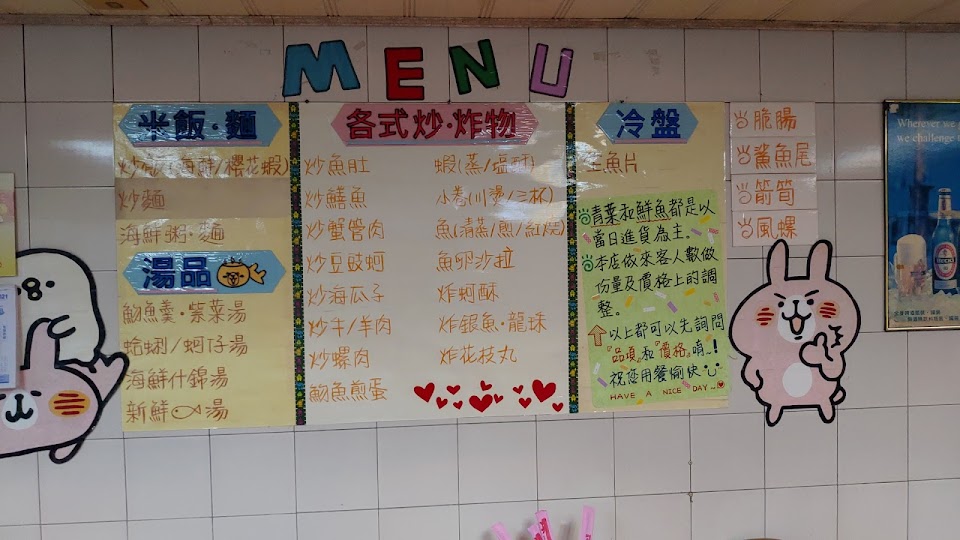 MENU
米飯·麵
炒麵
海鮮粥·麵
湯品
魩魚羹·紫菜湯
蛤蜊/蚵仔湯
海鮮什錦湯
新鮮湯
各式炒·炸物
炒魚肚
炒鱔魚
炒蟹管肉
炒豆豉蚵
炒海瓜子
炒牛/羊肉
炒螺肉
魩魚煎蛋
蝦(蒸/塩酥)
小卷(川燙/三杯)
魚(清蒸/煎/紅燒)
魚卵沙拉
炸蚵酥
炸銀魚·龍珠
炸花枝丸
冷盤
生魚片
青菜和鮮魚都是以
當日進貨為主。
本店依來客人數做
份量及價格上的調
整。
以上都可以先詢問
"品項"和"價格"唷~!
祝您用餐愉快
HAVE A NICE DAY
脆腸
鯊魚尾
箭筍
風螺
Wherever we
we challenge